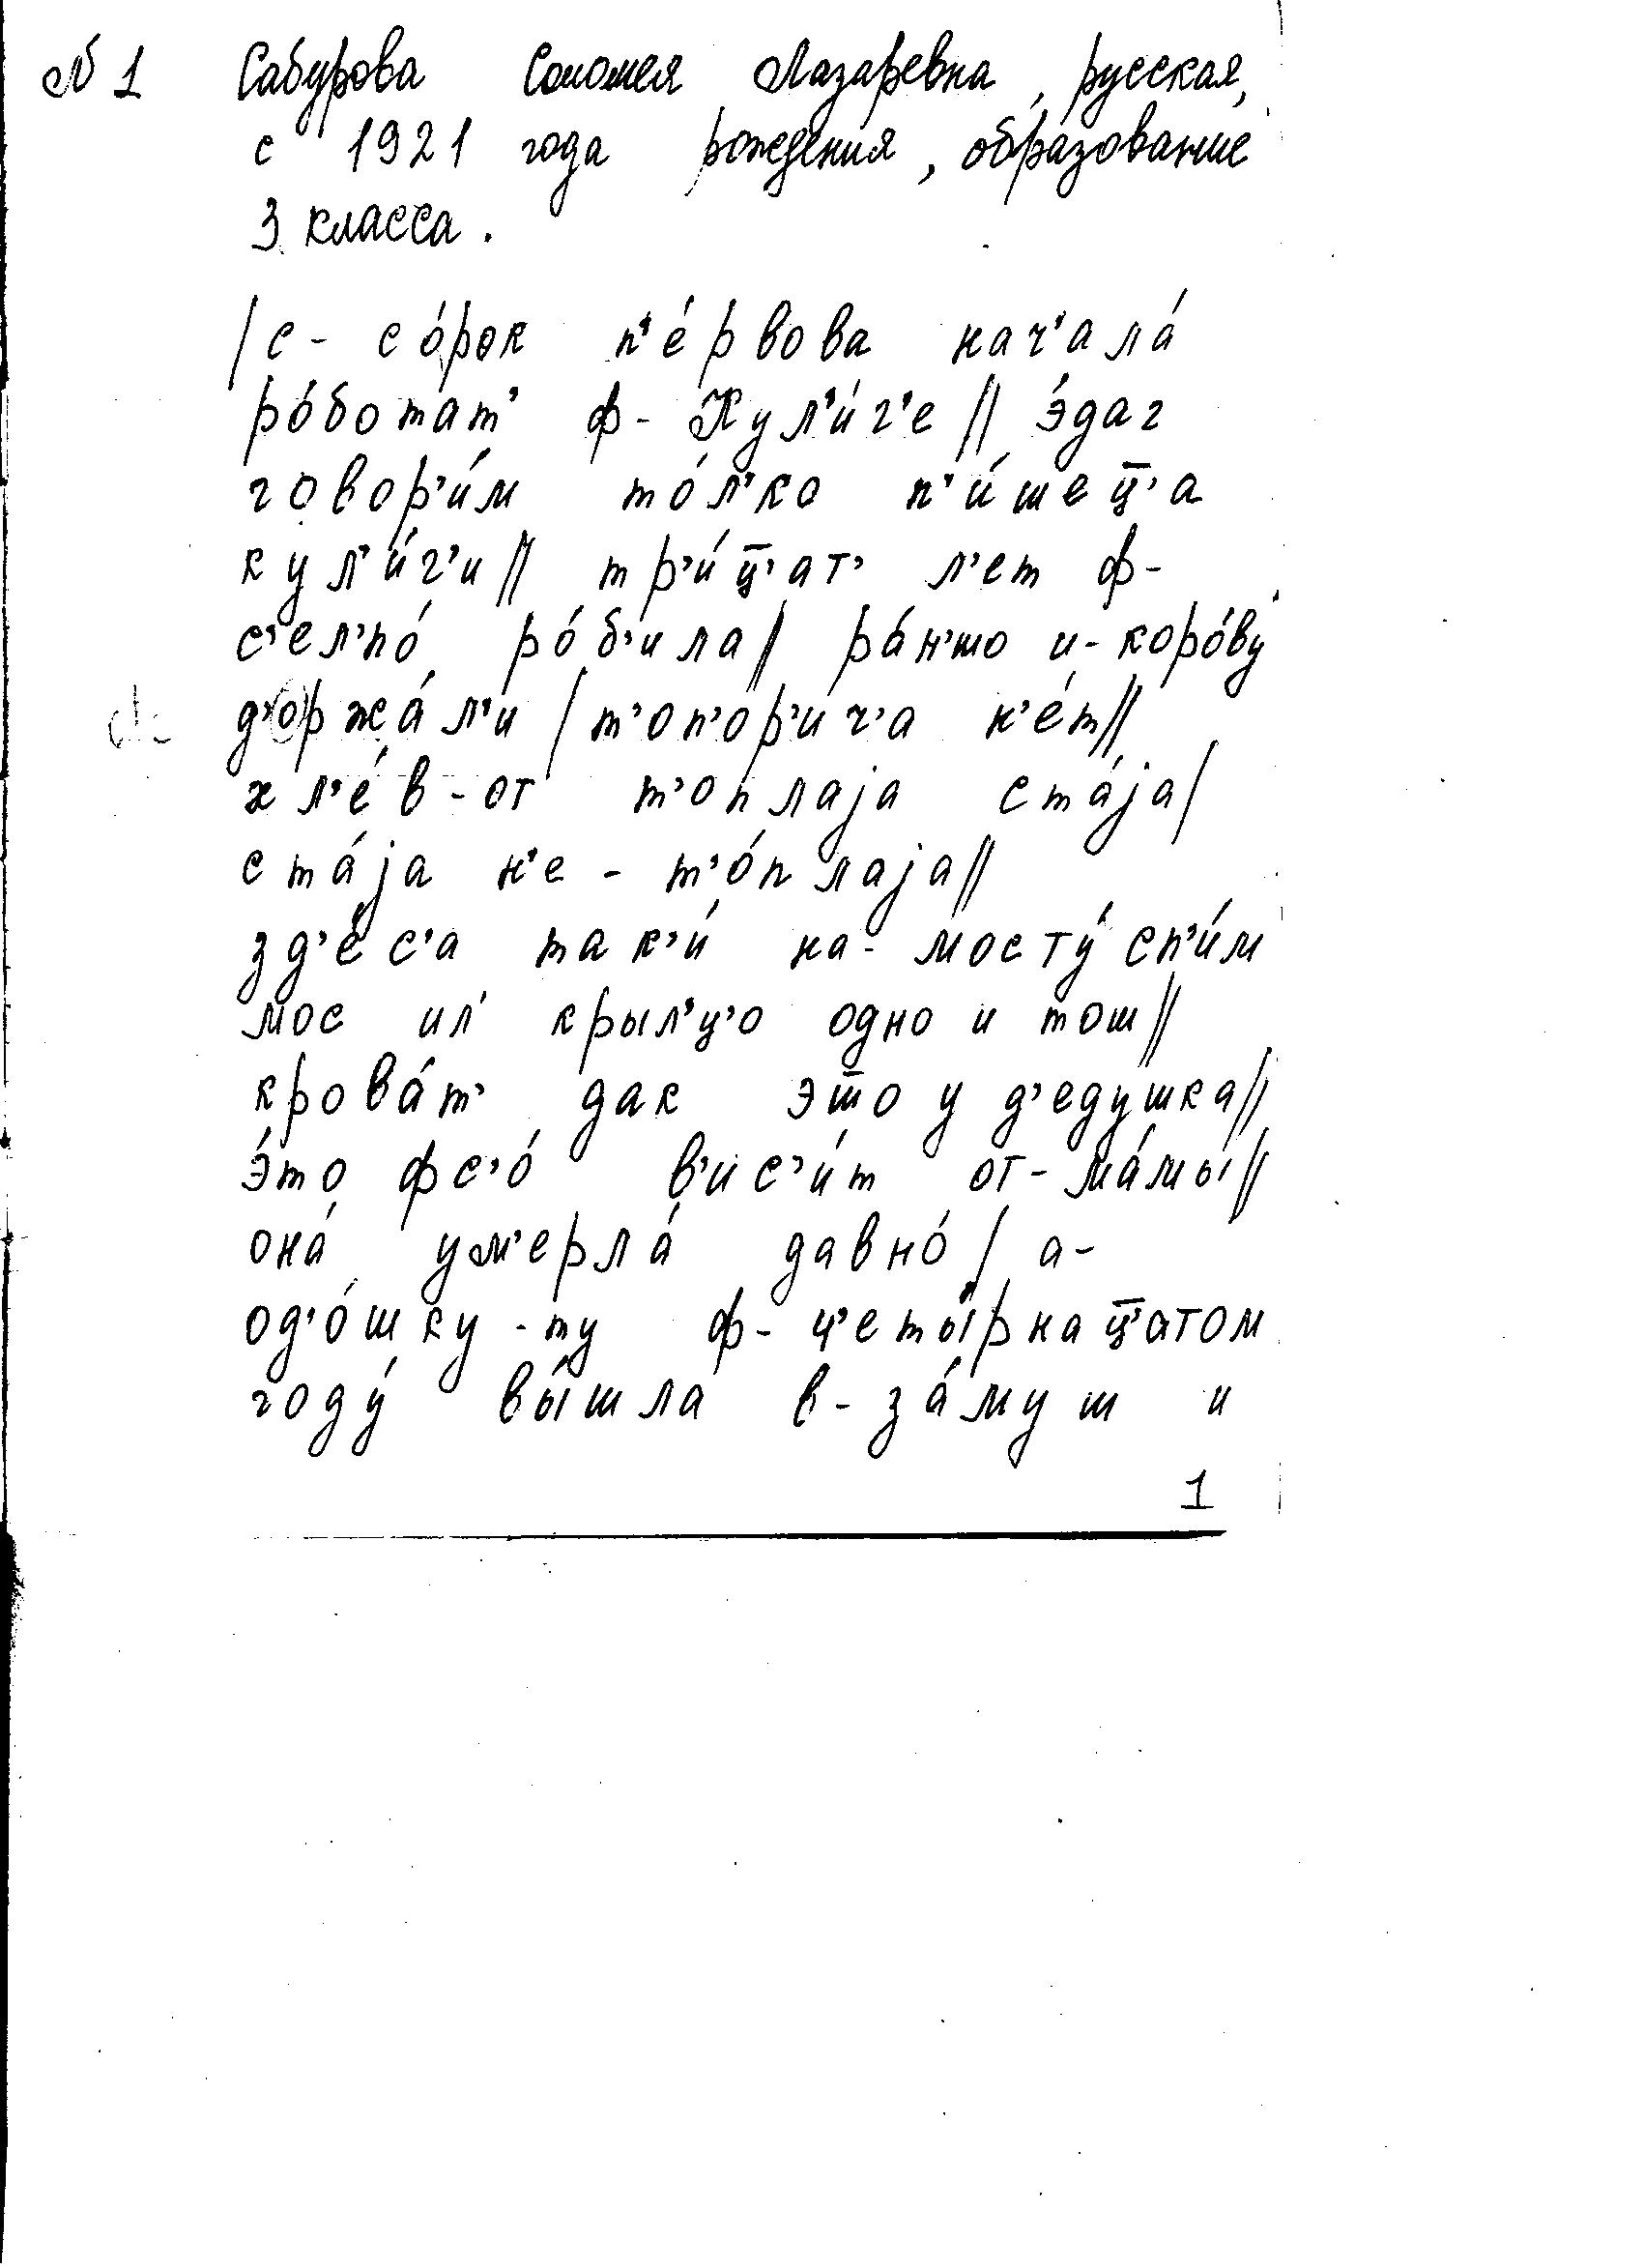 № 1 Сабурова Соломея Лазаревна, русская,
с 1921 года рождения, образование
3 класса.
/ с- со́рок п'е́рвова нач'ала́
ро́ботат' ф- Кул'и́г'е // э́даг
говор'и́м то́л'ко п'и́шец̅'а
кул'и́г'и // тр'и́ц̅'ат' л'ет ф-
с'ел'по́ ро́б'ила // ра́н'шо и- коро́ву
д'оржа́л'и / т'оп'ор'ич'а н'е́т //
хл'е́в-от т'оплаjа ста́jа /
ста́jа н'е - т'о́плаjа //
зд'е́с'а так'и́ на- мосту́ сп'и́м
мос ил' крыл'ц'о одно и тош //
крова́т' дак эт̅о у д'едушка //
э́то фс'о́ в'ис'и́т от- ма́мы //
она́ ум'ерла́ давно́ / а-
од'о́шку -ту ф- ц'еты́рнац̅'атом
году́ вы́шла в- за́муш и
1